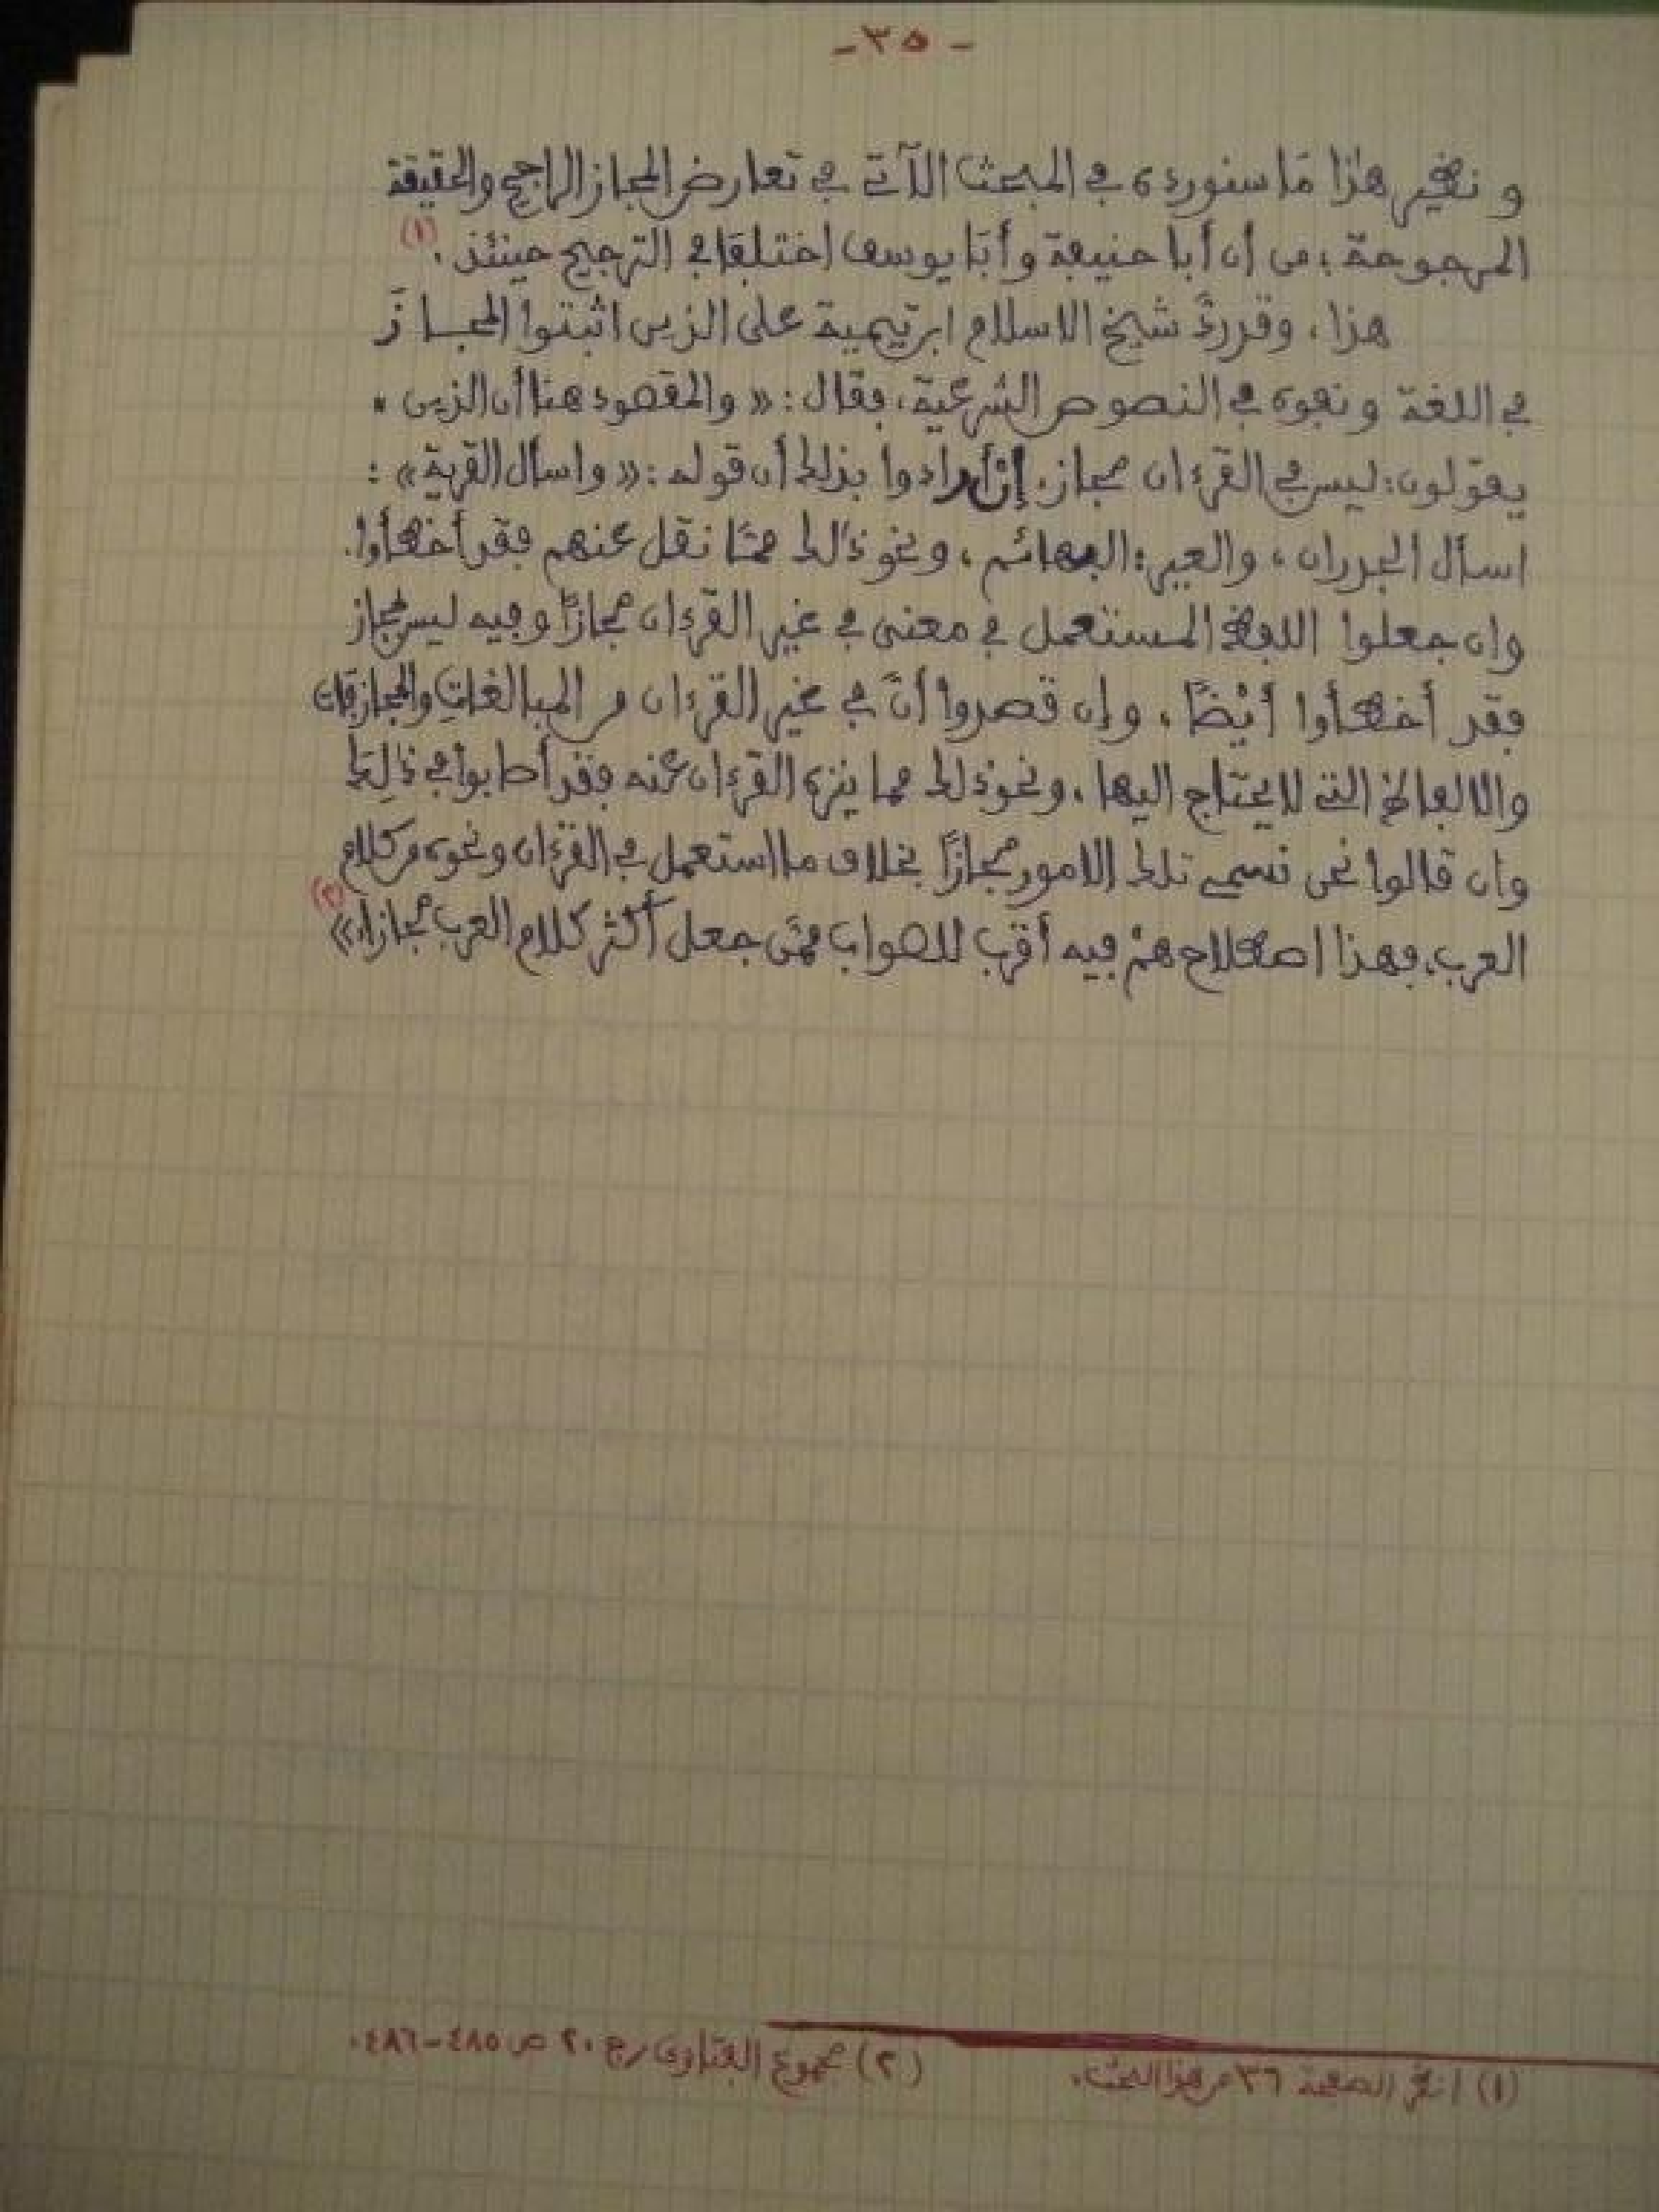 - ٣٥ -
ونظير هذا مَا سنورده في المبحث الآتي في تعارض المجاز الراجح والحقيقة
المرجوحة ؛ من أن أبا حنيفة وأبَا يوسف اختلفَا في الترجيح حينئذ . (١)
هذا ، وقد ردَّ شيخ الاسلام ابن تيمية على الذين اثبتوا المجازَ
في اللغة ونفوه في النصوص الشرعية ، فقال : « والمقصود هنا أن الذين
يقولون : ليس في القرءان مجاز . إنْ أرادوا بذلك أن قوله : « واسأل القرية » :
اسأل الجدران ، والعير : البهائم ، ونحو ذٰلك ممَّا نقل عنهم فقد أخطأوا .
وإن جعلوا اللفظ المستعمل في معنى في غير القرءان مجازًا وفيه ليس بمجاز
فقد أخطأوا أيْضًا ، وإن قصدوا أنَّ في غير القرءان من المبالغاتِ والمجازفات
والالفاظ التي لا يحتاج اليها ، ونحو ذلك مما ينزه القرءان عنه فقد أصابوا في ذٰلِكَ
وان قالوا نحن نسمي تلك الامور مجازًا بخلاف ما استعمل في القرءان ونحوه من كلام
العرب ، فهذا اصطلاح همْ فيه أقرب للصواب ممَّن جعل أكثر كلام العرب مجازا » (٢)
(١) انظر الصفحة ٣٦ من هذا البحث . (٢) مجموع الفتاوى ج ٢٠ ص ٤٨٥ - ٤٨٦ .